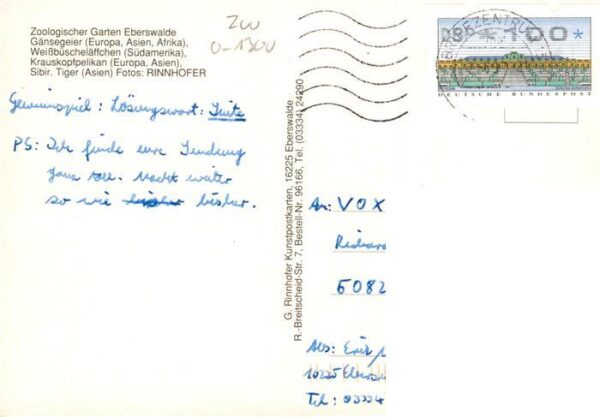 Zoologischer Garten Eberswalde
Gänsegeier (Europa, Asien, Afrika),
Weißbüscheläffchen (Südamerika),
Krauskopfpelikan (Europa, Asien),
Sibir. Tiger (Asien) Fotos: RINNHOFER
Zoo
0-1300
Gewinnspiel: Lösungswort:
PS: Ich finde eure Sendung
ganz toll. Macht weiter
so wie bisher.
G. Rinnhofer Kunstpostkarten, 16225 Eberswalde
R.-Breitscheid-Str. 7, Bestell-Nr. 96166, Tel. (03334) 24290
BRIEFZENTRUM
100
DEUTSCHE BUNDESPOST
An: VOX
Richard
5082
Abs:
Tel: 03334